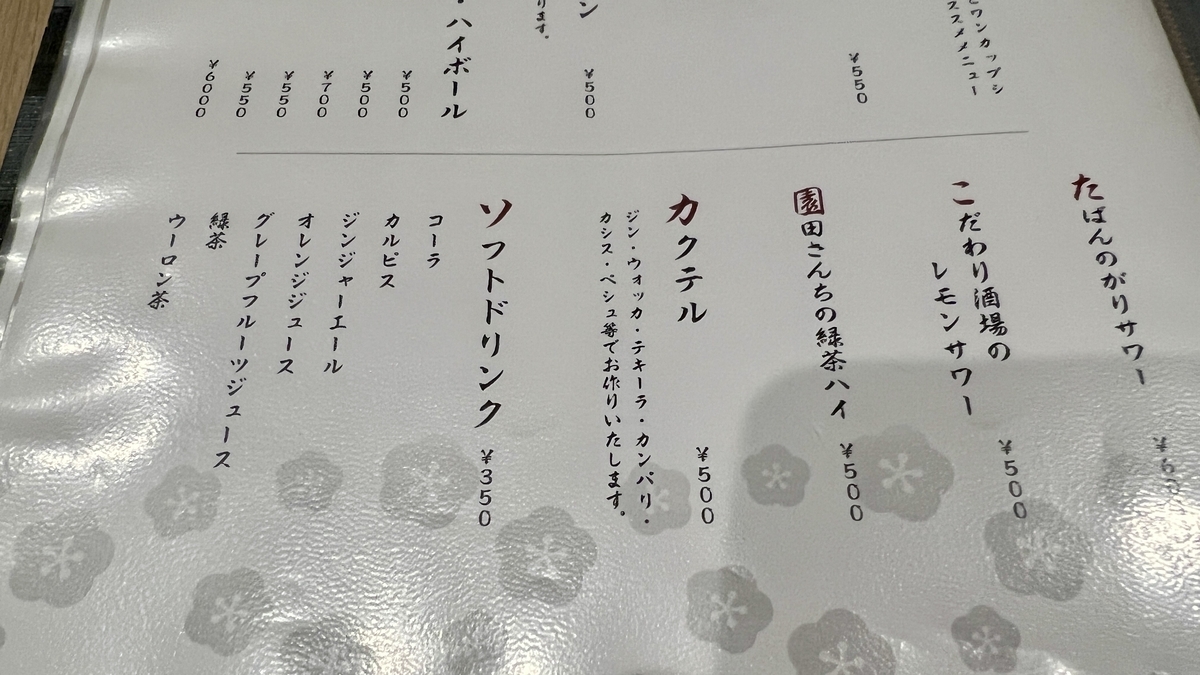 ワンカップシ
ススメメニュー
¥550
ン
¥500
ります。
・ハイボール
¥500
¥500
¥700
¥550
¥550
¥6000
たばんのがりサワー
こだわり酒場の
レモンサワー
¥500
園田さんちの緑茶ハイ
¥500
カクテル
¥500
ジン・ウォッカ・テキーラ・カンパリ・
カシス・ペシュ等でお作りいたします。
ソフトドリンク
¥350
コーラ
カルピス
ジンジャーエール
オレンジジュース
グレープフルーツジュース
緑茶
ウーロン茶